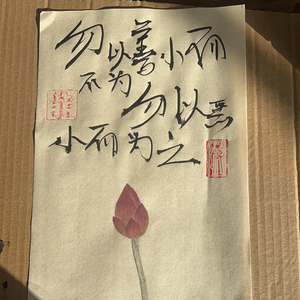 勿以善小而
不为勿以恶
小而为之